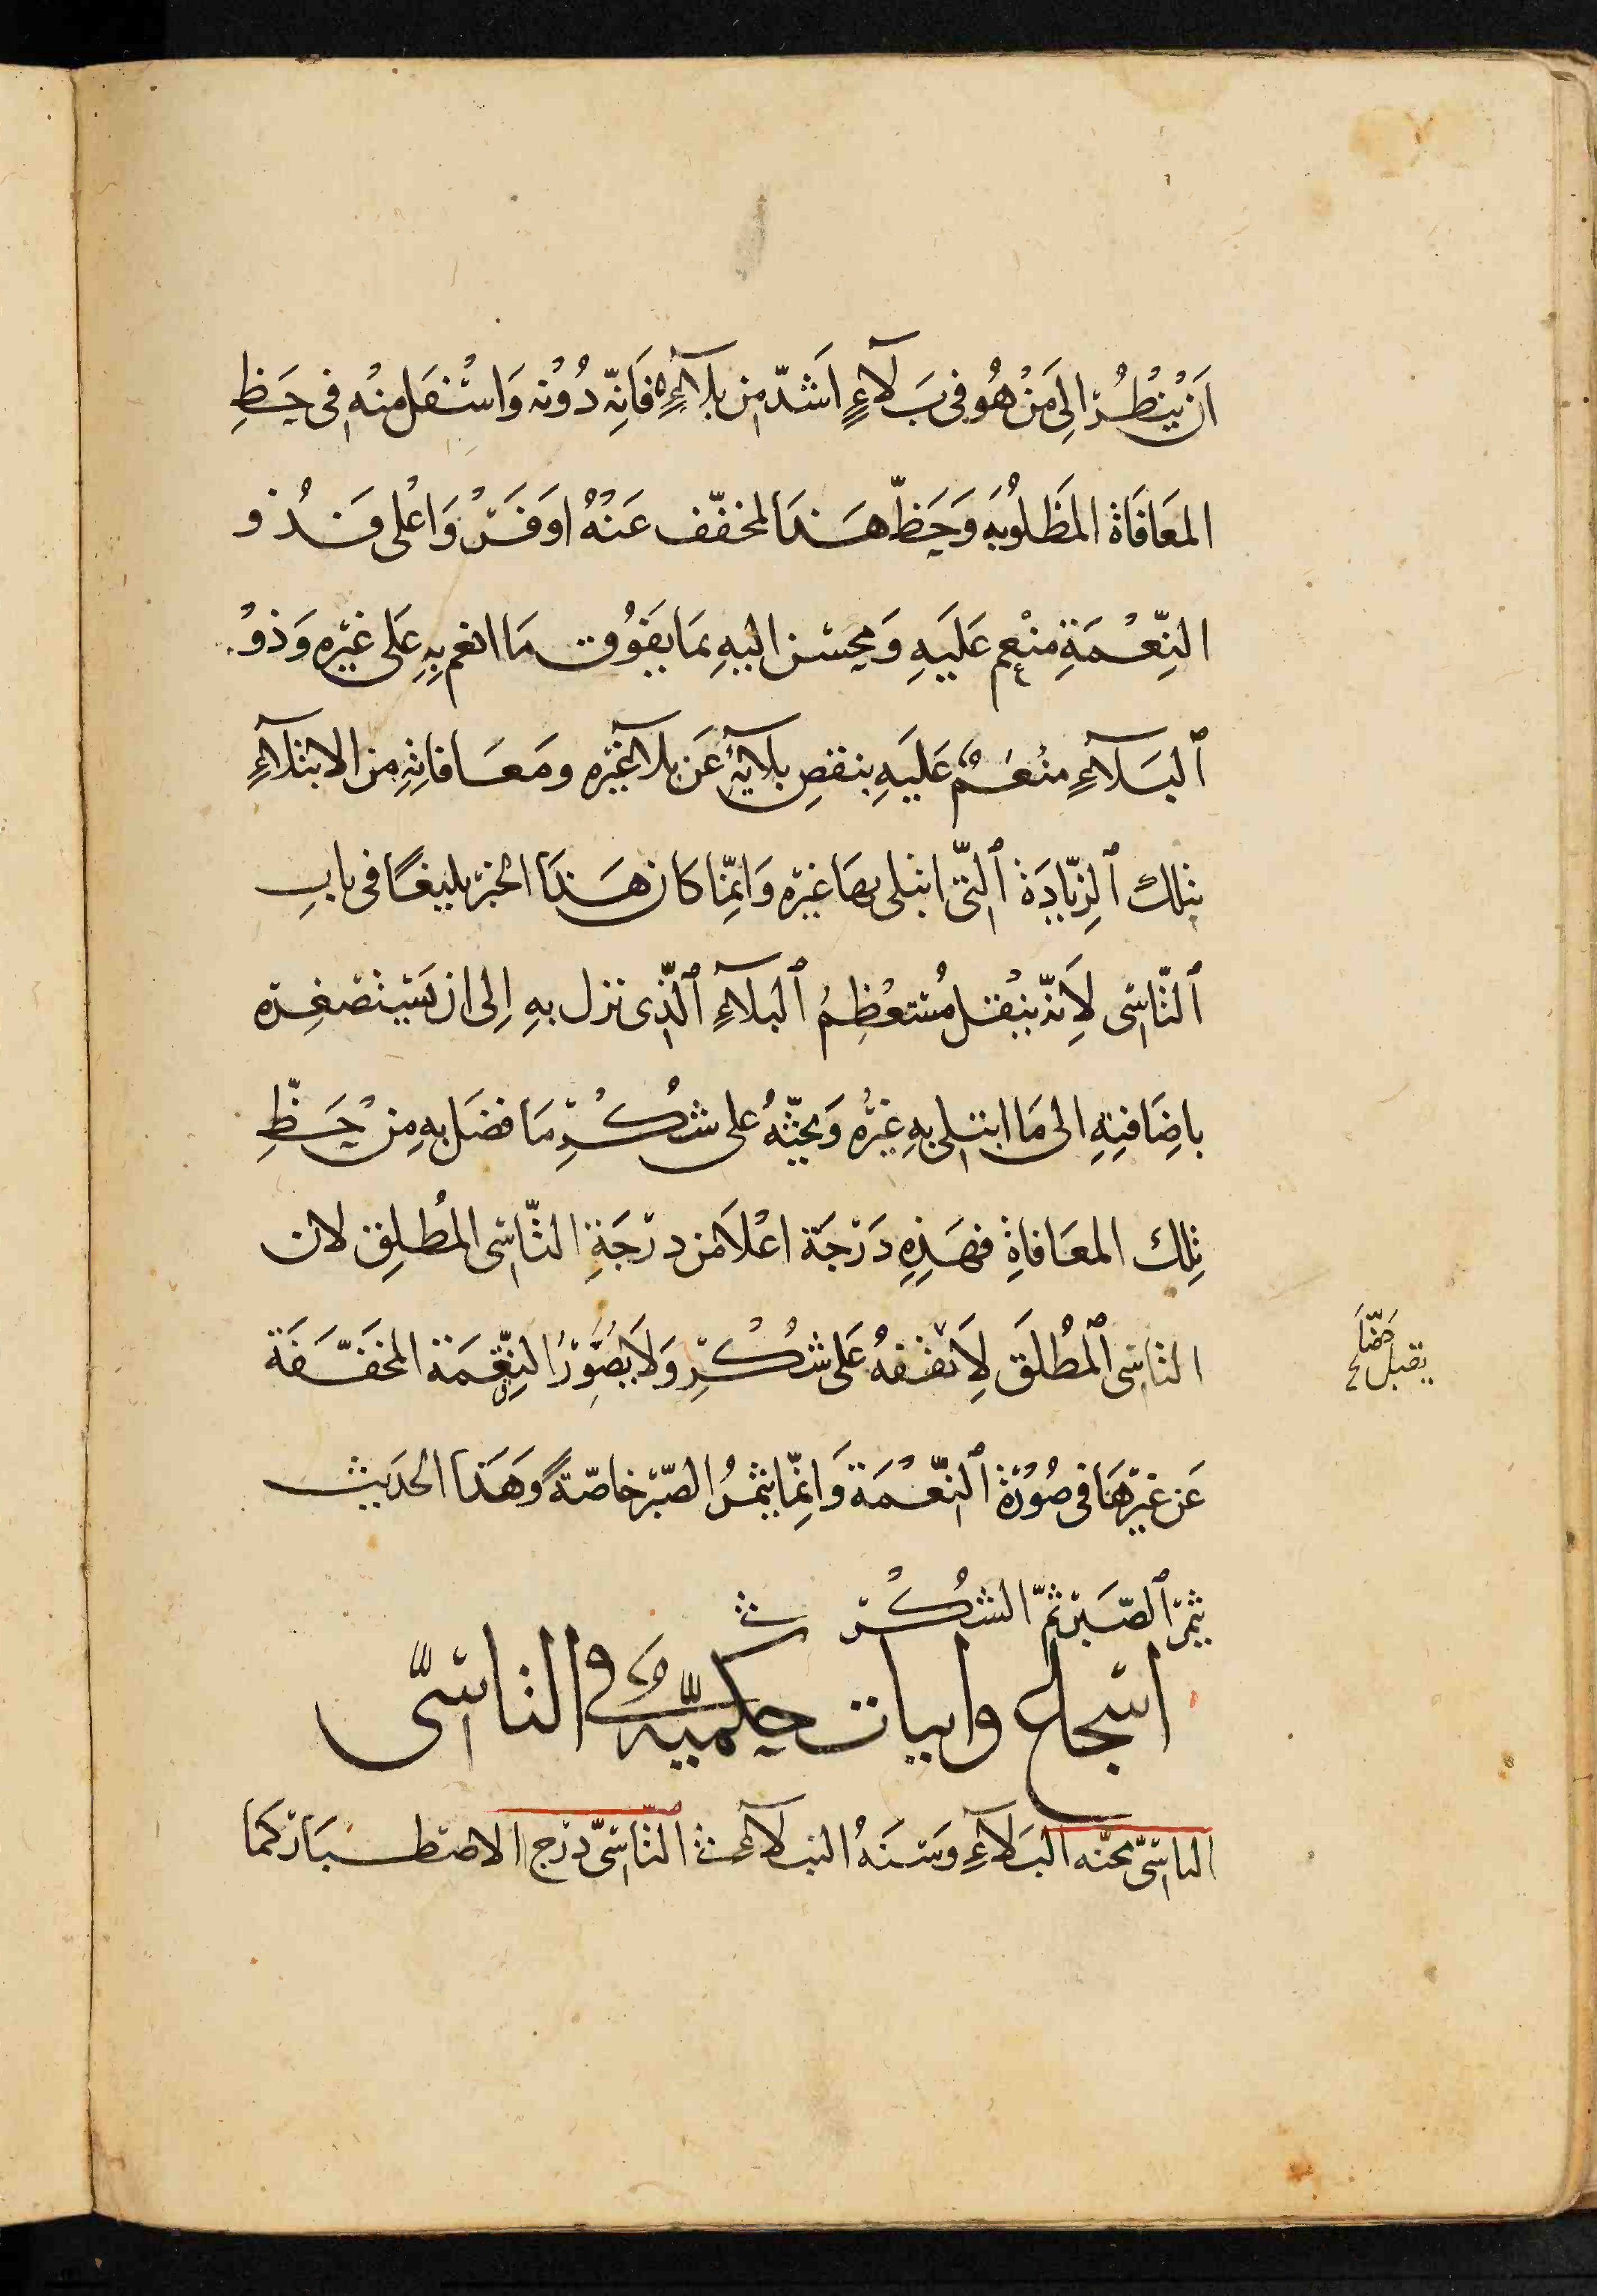 اَن يَنْظُرَ اِلى مَنْ هُو فى بَلآءٍ اَشدّ من بلآءِهِ فَاِنّه دُوْنه وَاسْفل منْه فى حَظِ
المعَافَاة المَطْلُوبهِ وَحَظّ هَذا المخفّف عَنْهُ اوفَرْ وَاعْلى فذُو
النِّعْمَةِ منْعم عَلَيهِ وَمحسَن اليهِ بمَا يَفوُق مَا انعم بِهِ عَلى غيْره وَذوُ
ٱلبَلآءِ منْعَمٌ عَليَهِ بنقصِ بلآئِهِ عَن بلآء غيْره ومَعَافاتِهِ من الابتلآءِ
بتلك ٱلزّيادَة ٱلتّى ابتلى بهَا غيْره وَاِنّما كان هَذا الخبْر بليغًا فى بابِ
ٱلتّاسّى لاَِنّه ينْقل مُسْتعْظِمُ ٱلبلآءِ ٱلّذى نزل بهِ اِلى ان يَسْتَصْغِره
باضِافتِهِ الى مَا ابتلى بهِ غيْرُه وَيحثّهُ على شكُرِ مَا فضَل بهِ مِنْ حَظّ
تِلك المعَافاةِ فهَذِهِ دَرَجَة اعْلاَ من درَجَةِ التّاسّى المُطْلِق لان
التاسّى ٱلمُطْلَق لاَ يقفهُ عَلى شكُرِ وَلاَ يُصَوّرُ النّعْمَة المخفَّفَة
يقبل حضّا صح
عَن غيْرِهَا فى صُوْرَة ٱلنّعْمَة وَاِنّما يثمرُ الصّبْر خاصّةً وَهَذا الحدَيث
يثمرُ ٱلصّبَر ثمّ الشكُرْ
اسْجاع وابيات حكميّه فى التاسّى
التاسّى جنّه البَلآءِ وَسنَهُ النبلآء التّاسّى درَج الاصْطبَار كمَا